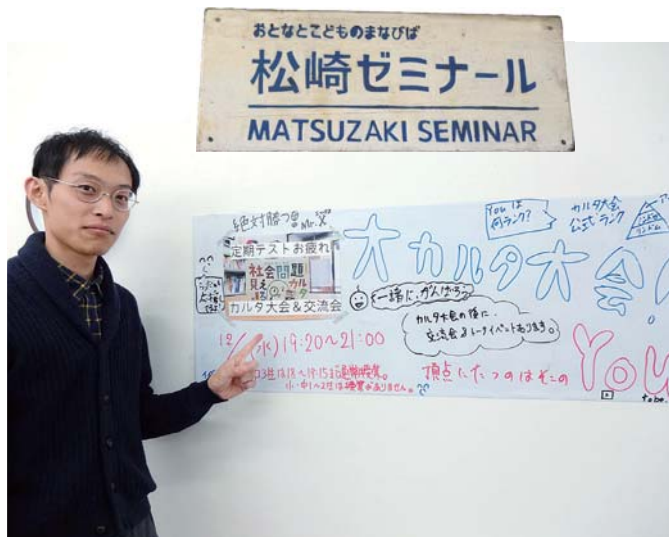 おとなとこどものまなびば
松崎ゼミナール
MATSUZAKI SEMINAR
絶対勝つ
定期テストお疲れ
社会問題
見える
カルタ
カルタ大会&交流会
大カルタ大会!
Youは
何ランク?
カルタ大会
公式ランク
一緒に、がんばろう
カルタ大会の後に、
交流会&トークイベントあります。
12/
(水)19:20〜21:00
小・中1〜2生は授業がありません。
頂点にたつのはそこの
You